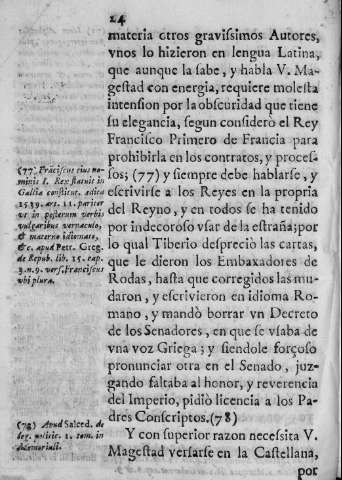 24
materia otros gravissimos Autores,
vnos lo hizieron en lengua Latina,
que aunque la sabe, y habla V. Ma-
gestad con energia, requiere molesta
intension por la obscuridad que tiene
su elegancia, segun considerò el Rey
Francisco Primero de Francia para
prohibirla en los contratos, y proces-
sos; (77) y siempre debe hablarse, y
escrivirse a los Reyes en la propria
del Reyno, y en todos se ha tenido
por indecoroso vsar de la estraña; por
lo qual Tiberio despreciò las cartas,
que le dieron los Embaxadores de
Rodas, hasta que corregidos las mu-
daron, y escrivieron en idioma Ro-
mano, y mandò borrar vn Decreto
de los Senadores, en que se vsaba de
vna voz Griega; y siendole forçoso
pronunciar otra en el Senado, juz-
gando faltaba al honor, y reverencia
del Imperio, pidiò licencia a los Pa-
dres Conscriptos. (78)
Y con superior razon necessita V.
Magestad versarse en la Castellana,
por
(77) Frãciscus eius no-
minis I. Rex statuit in
Gallia constitut. edita
1539. art. 11. pariter
vt in gestorum verbis
vulgaribus vernaculo,
& materno idiomate,
&c. apud Petr. Greg.
de Repub. lib. 15. cap.
3. n. 9. vers. Franciscus
vbi plura.
(78) Apud Salced. de
leg. politic. 1. tom. in